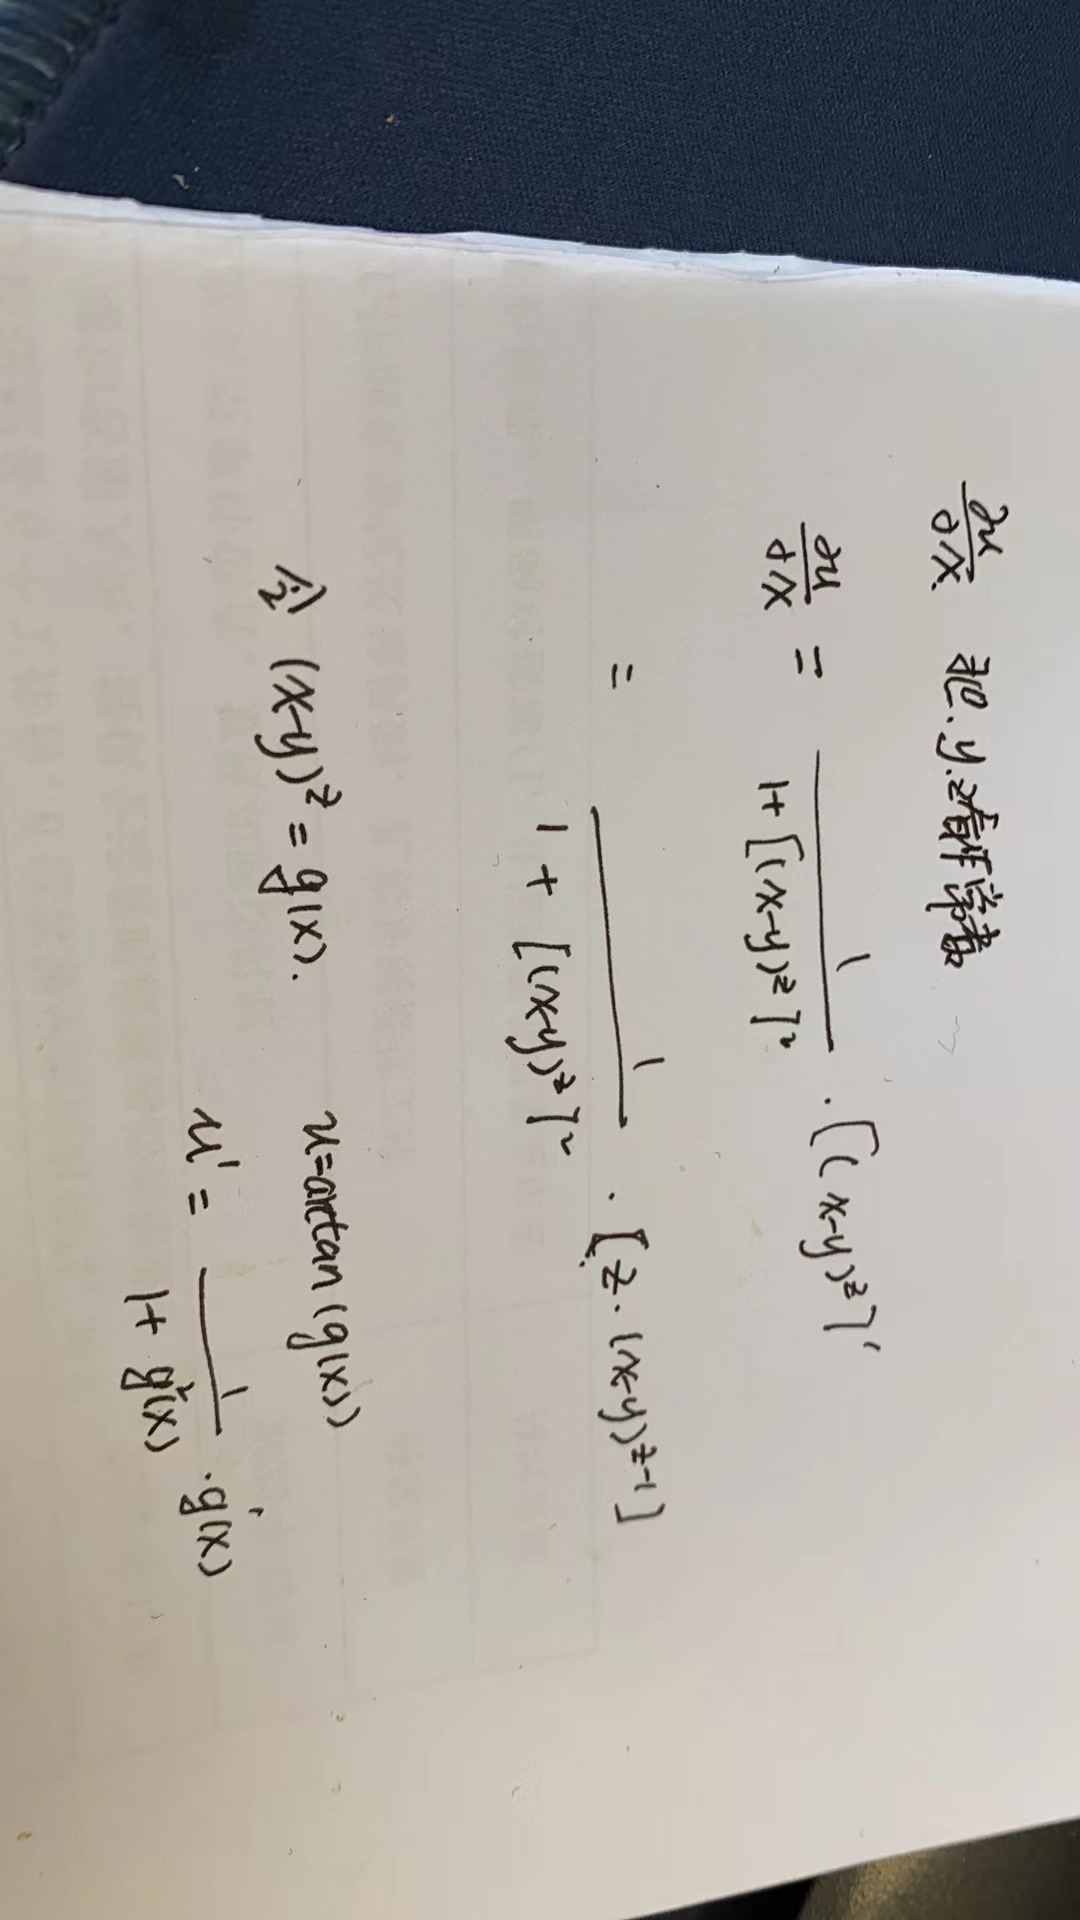 ∂u/∂x 把.y.z看作常数
∂u/∂x = 1/(1+[(x-y)^z]^2) · [(x-y)^z]'
= 1/(1+[(x-y)^z]^2) · [z·(x-y)^(z-1)]
令 (x-y)^z = g(x). u=arctan(g(x))
u' = 1/(1+g^2(x)) · g'(x)